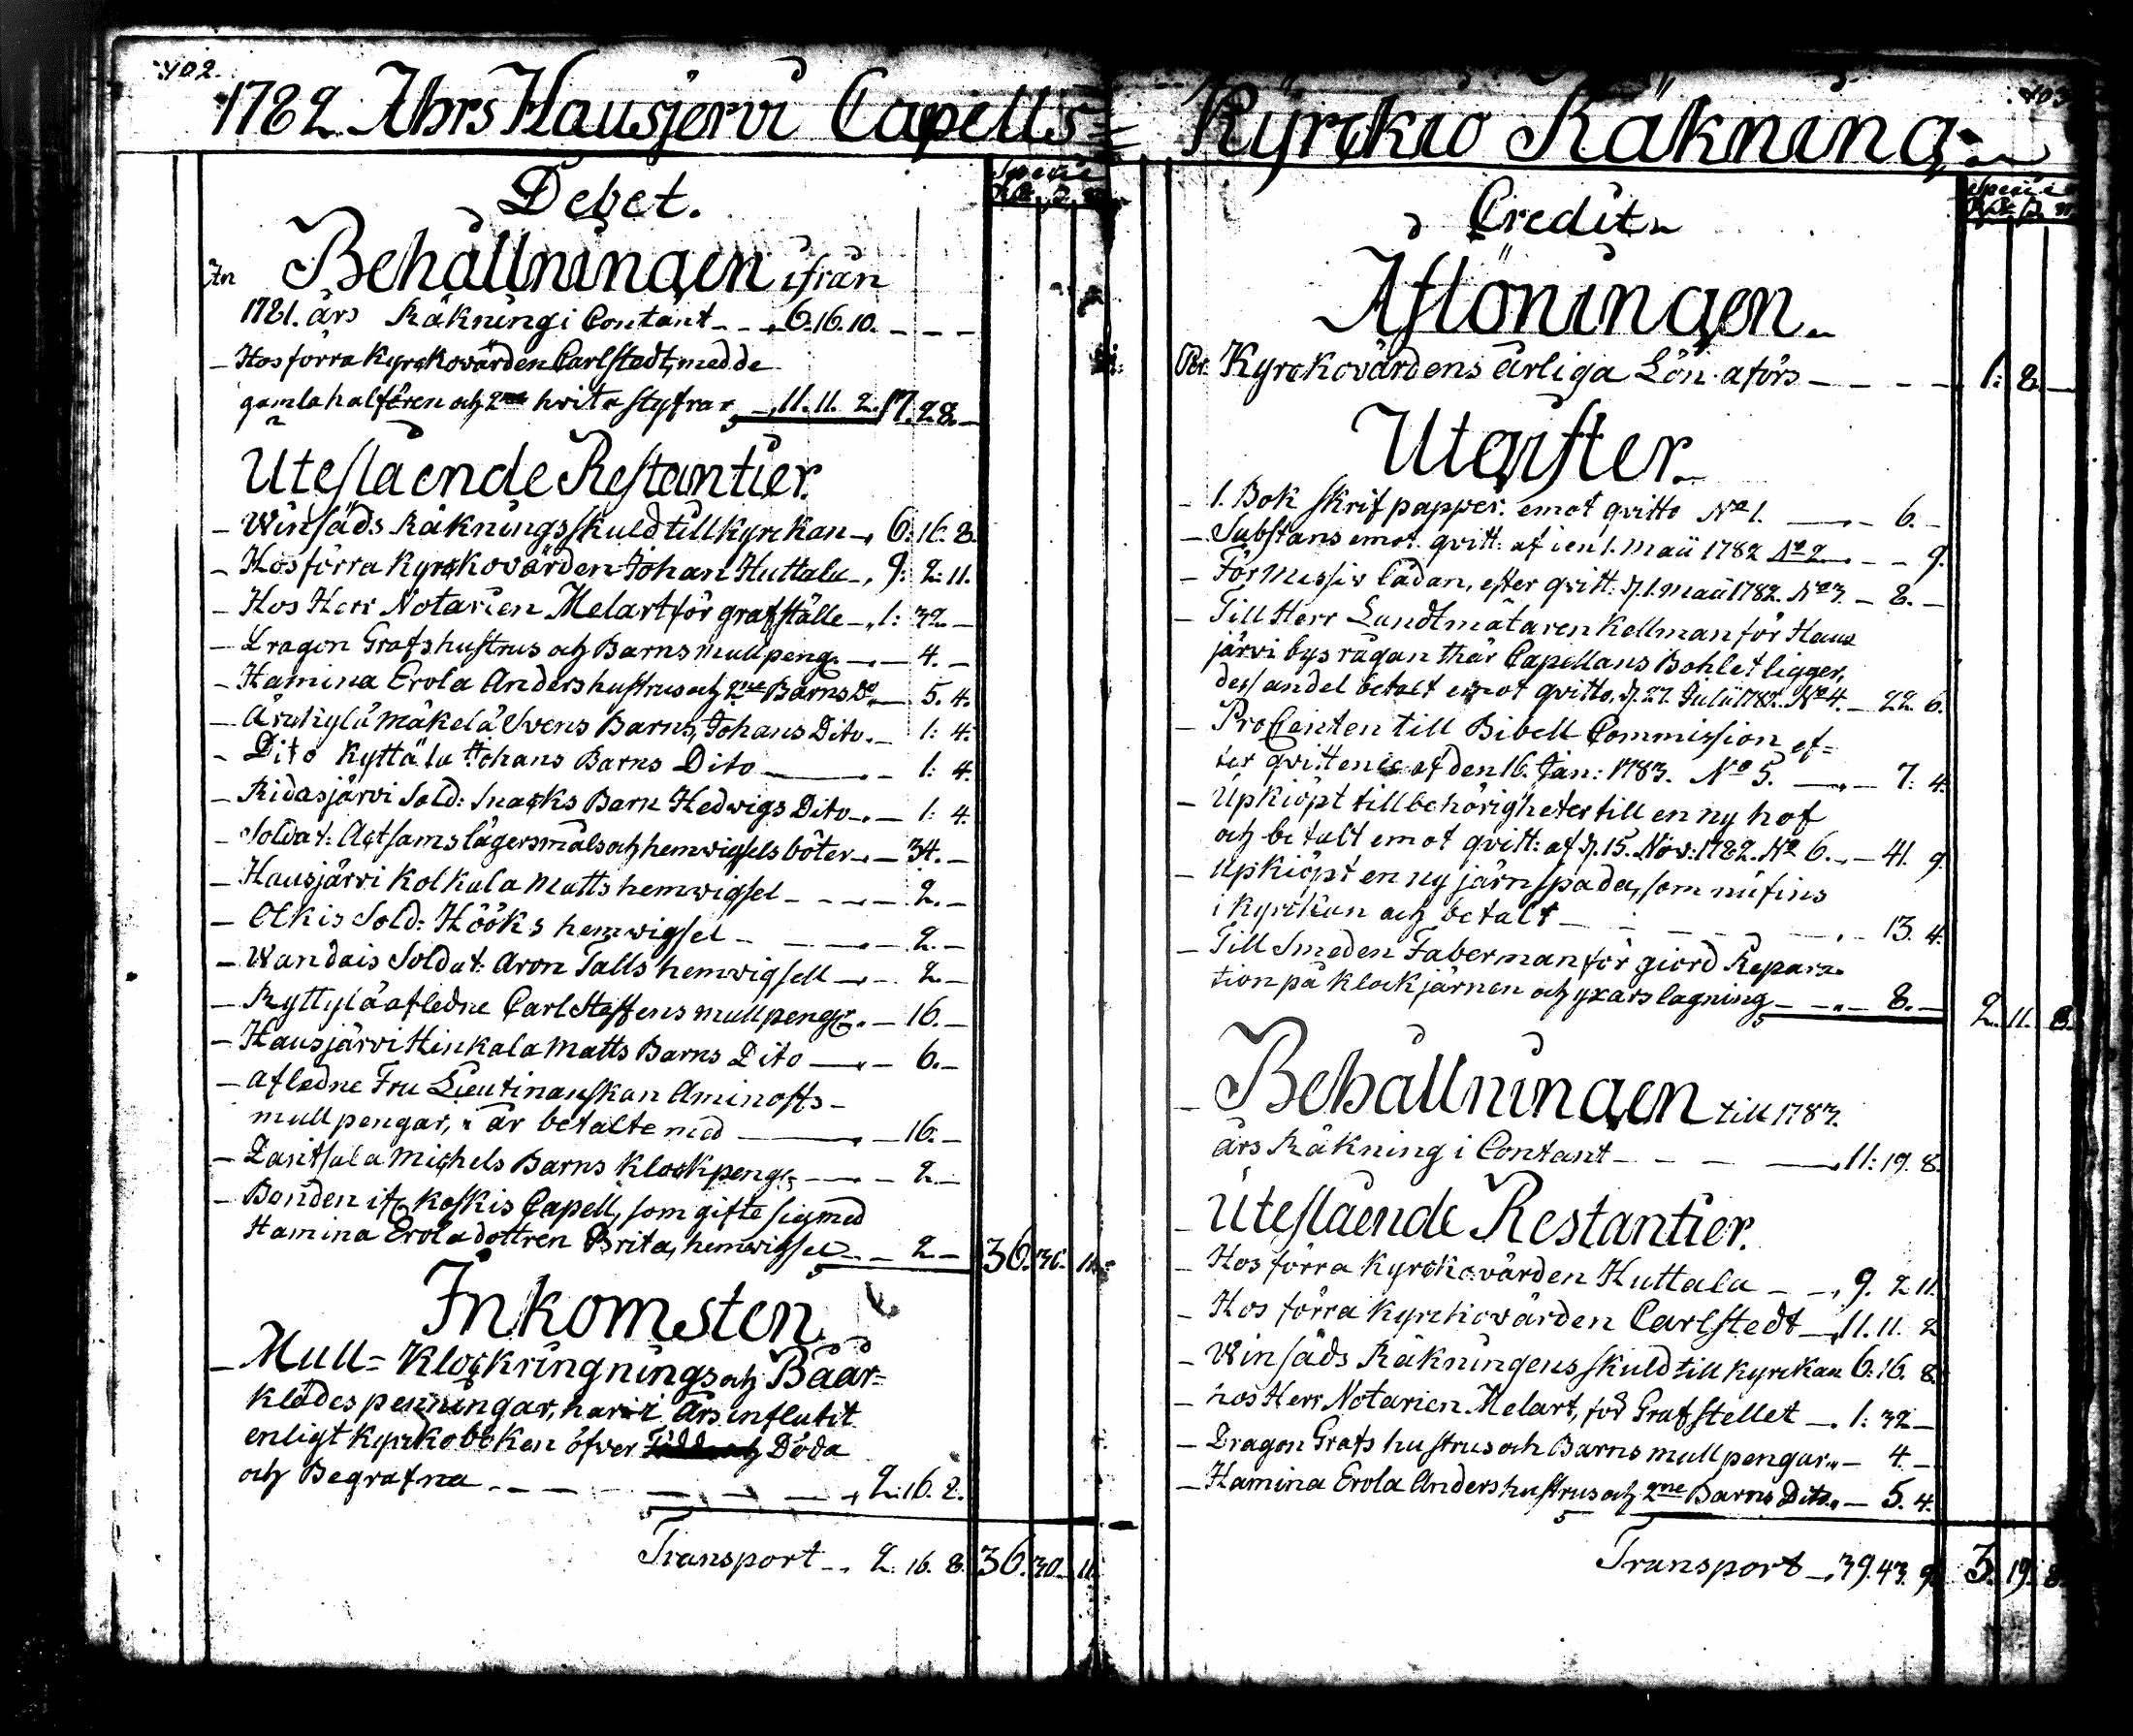 402.
1782 Åhrs Hausjervi Capells
Debet.
Specie
An Behållningen ifrån
1781. års Räkning i Contant - - 6. 16. 10. - - -
- Hos förra Kyrckovärden Carlstedt, med de
gamla halfören och 2ne hvita styfrar - 11. 11. 2. 17. 28. -
Utestående Restantier.
- Winsäds Räknings skuld till kyrckan - 6: 16. 8.
- Hos förra Kyrckovärden Johan Huttala - 9: 2: 11.
- Hos Herr Notarien Melart för grafställe - 1: 32 -
- Dragon Grafs hustrus och Barns mull peng. - - 4. -
- Hamina Erola Anders hustrus och 2ne Barns Do - 5. 4.
- Mäkelä Svens Barns, Johans Dito. - 1: 4.
- Dito Kyttälä Johans Barns Dito - - 1: 4.
- Ridasjärvi Sold: Snacks Barn Hedwigs Dito - - 1: 4.
- Soldat: Actsams lägersmåls och hemwigsels böter - - 34. -
- Hausjärvi Kolkala Matts hemwigsel - - - - 2. -
- Olkis Sold: Hööks hemwigsel - - - - 2. -
- Wandais Soldat: Aron Talls hemwigsell - - 2 -
- Ryttylä afledne Carl Steffens mullpengr. - 16. -
- Hausjärvi Hinkala Matts Barns Dito - - 6. -
- afledne Fru Lieutinanskan Aminoffs -
mull pengar, i år betalte med - - 16. -
- Michels Barns Klockpeng. - - 2 -
- Bonden ifr. Koskis Capell, som gifte sig med
Hamina Erola dottren Brita, hemwigsel - - 2 - 36. 30. 11.
Inkomsten
- Mull- Klockringnings och Båar-
klädes penningar, har i Års influtit
enligt kyrkoboken öfver Döda
och Begrafna - - - - - - 2. 16. 2.
Transport - . 2. 16. 8. 36. 30. 11.
403
Kyrckio Räkning
Credit
Specie
Aflöningen
Per Kyrckovärdens årliga Lön afförs - - - - 1: 8. -
Utgifter
- 1. Bok skrif papper. emot qvitto No 1. - - 6. -
- Substans emot qvitt: af den 1. Maii 1782 No 2 - - 9.
- För Missiv lådan, efter qvitt: d. 1. Maii 1782. No 3. - 8. -
- Till Herr Landtmätaren Kellman för Haus
järvi bys rågan thär Capellans Bohlet ligger,
dess andel betalt emot qvitto, d. 27. Julii 1782. No 4. - 22 6.
- ProCenten till Bibell Commission ef=
ter qvittence af den 16. Jan: 1783. No 5. - - 7: 4.
- Upkiöpt tillbehörigheter till en ny hof
och betalt emot qvitt: af d. 15. Nov: 1782. No 6. - - 41. 9.
- Upkiöpt en ny järnspada, som nu fins
i Kyrckan och betalt - - - - - 13. 4.
- Till Smeden Faberman för giord Repara
tion på klockjärnen och yxars lagning - - - 8. - 2. 11. 8.
- Behållningen till 1783.
års Räkning i Contant - - - - 11: 19. 8.
- Utestående Restantier.
- Hos förra Kyrckovärden Huttala - - 9. 2 11.
- Hos förra Kyrckovärden Carlstedt - 11. 11. 2
- Winsäds Räkningens skuld till kyrckan 6: 16. 8.
- hos Herr Notarien Melart, för Grafstellet - 1: 32 -
- Dragon Grafs hustrus och Barns mull pengar. - 4 -
- Hamina Erola Anders hustrus och 2ne Barns Dito. - 5. 4.
Transport - 39. 43. 9. 3. 19. 8.